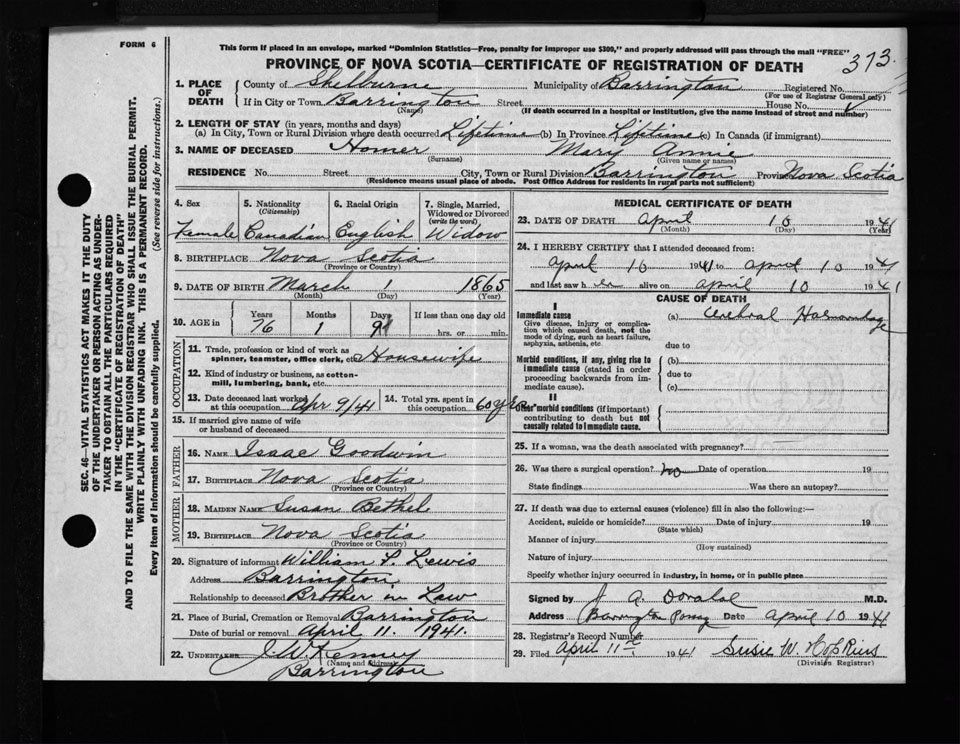 FORM 6
This form if placed in an envelope, marked "Dominion Statistics—Free, penalty for improper use $300," and properly addressed will pass through the mail "FREE"
PROVINCE OF NOVA SCOTIA—CERTIFICATE OF REGISTRATION OF DEATH
373.
1. PLACE OF DEATH
County of Shelburne Municipality of Barrington Registered No.
(For use of Registrar General only)
If in City or Town Barrington Street House No.
(Name) (If death occurred in a hospital or institution, give the name instead of street and number)
2. LENGTH OF STAY (in years, months and days)
(a) In City, Town or Rural Division where death occurred Lifetime (b) In Province Lifetime (c) In Canada (if immigrant)
3. NAME OF DECEASED Homer Mary Annie
(Surname) (Given name or names)
RESIDENCE No. Street City, Town or Rural Division Barrington Province Nova Scotia
(Residence means usual place of abode. Post Office Address for residents in rural parts not sufficient)
4. Sex
Female
5. Nationality
(Citizenship)
Canadian
6. Racial Origin
English
7. Single, Married, Widowed or Divorced
(write the word)
Widow
8. BIRTHPLACE Nova Scotia
(Province or Country)
9. DATE OF BIRTH March 1 1865
(Month) (Day) (Year)
10. AGE in
Years Months Days If less than one day
76 1 9 hrs. or min.
OCCUPATION
11. Trade, profession or kind of work as spinner, teamster, office clerk, etc. Housewife
12. Kind of industry or business, as cotton-mill, lumbering, bank, etc.
13. Date deceased last worked at this occupation Apr 9/41
14. Total yrs. spent in this occupation 60 yrs
15. If married give name of wife or husband of deceased
FATHER
16. NAME Isaac Goodwin
17. BIRTHPLACE Nova Scotia
(Province or Country)
MOTHER
18. MAIDEN NAME Susan Bethel
19. BIRTHPLACE Nova Scotia
(Province or Country)
20. Signature of informant William P. Lewis
Address Barrington
Relationship to deceased Brother in Law
21. Place of Burial, Cremation or Removal Barrington
Date of burial or removal April 11. 1941.
22. UNDERTAKER J. W. Kenney
(Name and Address)
Barrington
MEDICAL CERTIFICATE OF DEATH
23. DATE OF DEATH April 10 1941
(Month) (Day) (Year)
24. I HEREBY CERTIFY that I attended deceased from:
April 10 1941 to April 10 1941
and last saw her alive on April 10 1941
CAUSE OF DEATH
I
Immediate cause
Give disease, injury or complication which caused death, not the mode of dying, such as heart failure, asphyxia, asthenia, etc.
(a) Cerebral Haemorrhage
due to
Morbid conditions, if any, giving rise to immediate cause (stated in order proceeding backwards from immediate cause).
(b)
due to
(c)
II
Other morbid conditions (if important) contributing to death but not causally related to immediate cause.
25. If a woman, was the death associated with pregnancy?
26. Was there a surgical operation? No Date of operation 19
State findings Was there an autopsy?
27. If death was due to external causes (violence) fill in also the following:—
Accident, suicide or homicide? Date of injury 19
(State which)
Manner of injury
(How sustained)
Nature of injury
Specify whether injury occurred in industry, in home, or in public place
Signed by J A. M.D.
Address Barrington Passage Date April 10 1941
28. Registrar's Record Number
29. Filed April 11th 1941 Susie W. Hopkins
(Division Registrar)
SEC. 46—VITAL STATISTICS ACT MAKES IT THE DUTY OF THE UNDERTAKER OR PERSON ACTING AS UNDERTAKER TO OBTAIN ALL THE PARTICULARS REQUIRED IN THE "CERTIFICATE OF REGISTRATION OF DEATH"
AND TO FILE THE SAME WITH THE DIVISION REGISTRAR WHO SHALL ISSUE THE BURIAL PERMIT.
WRITE PLAINLY WITH UNFADING INK. THIS IS A PERMANENT RECORD.
Every item of information should be carefully supplied. (See reverse side for instructions.)